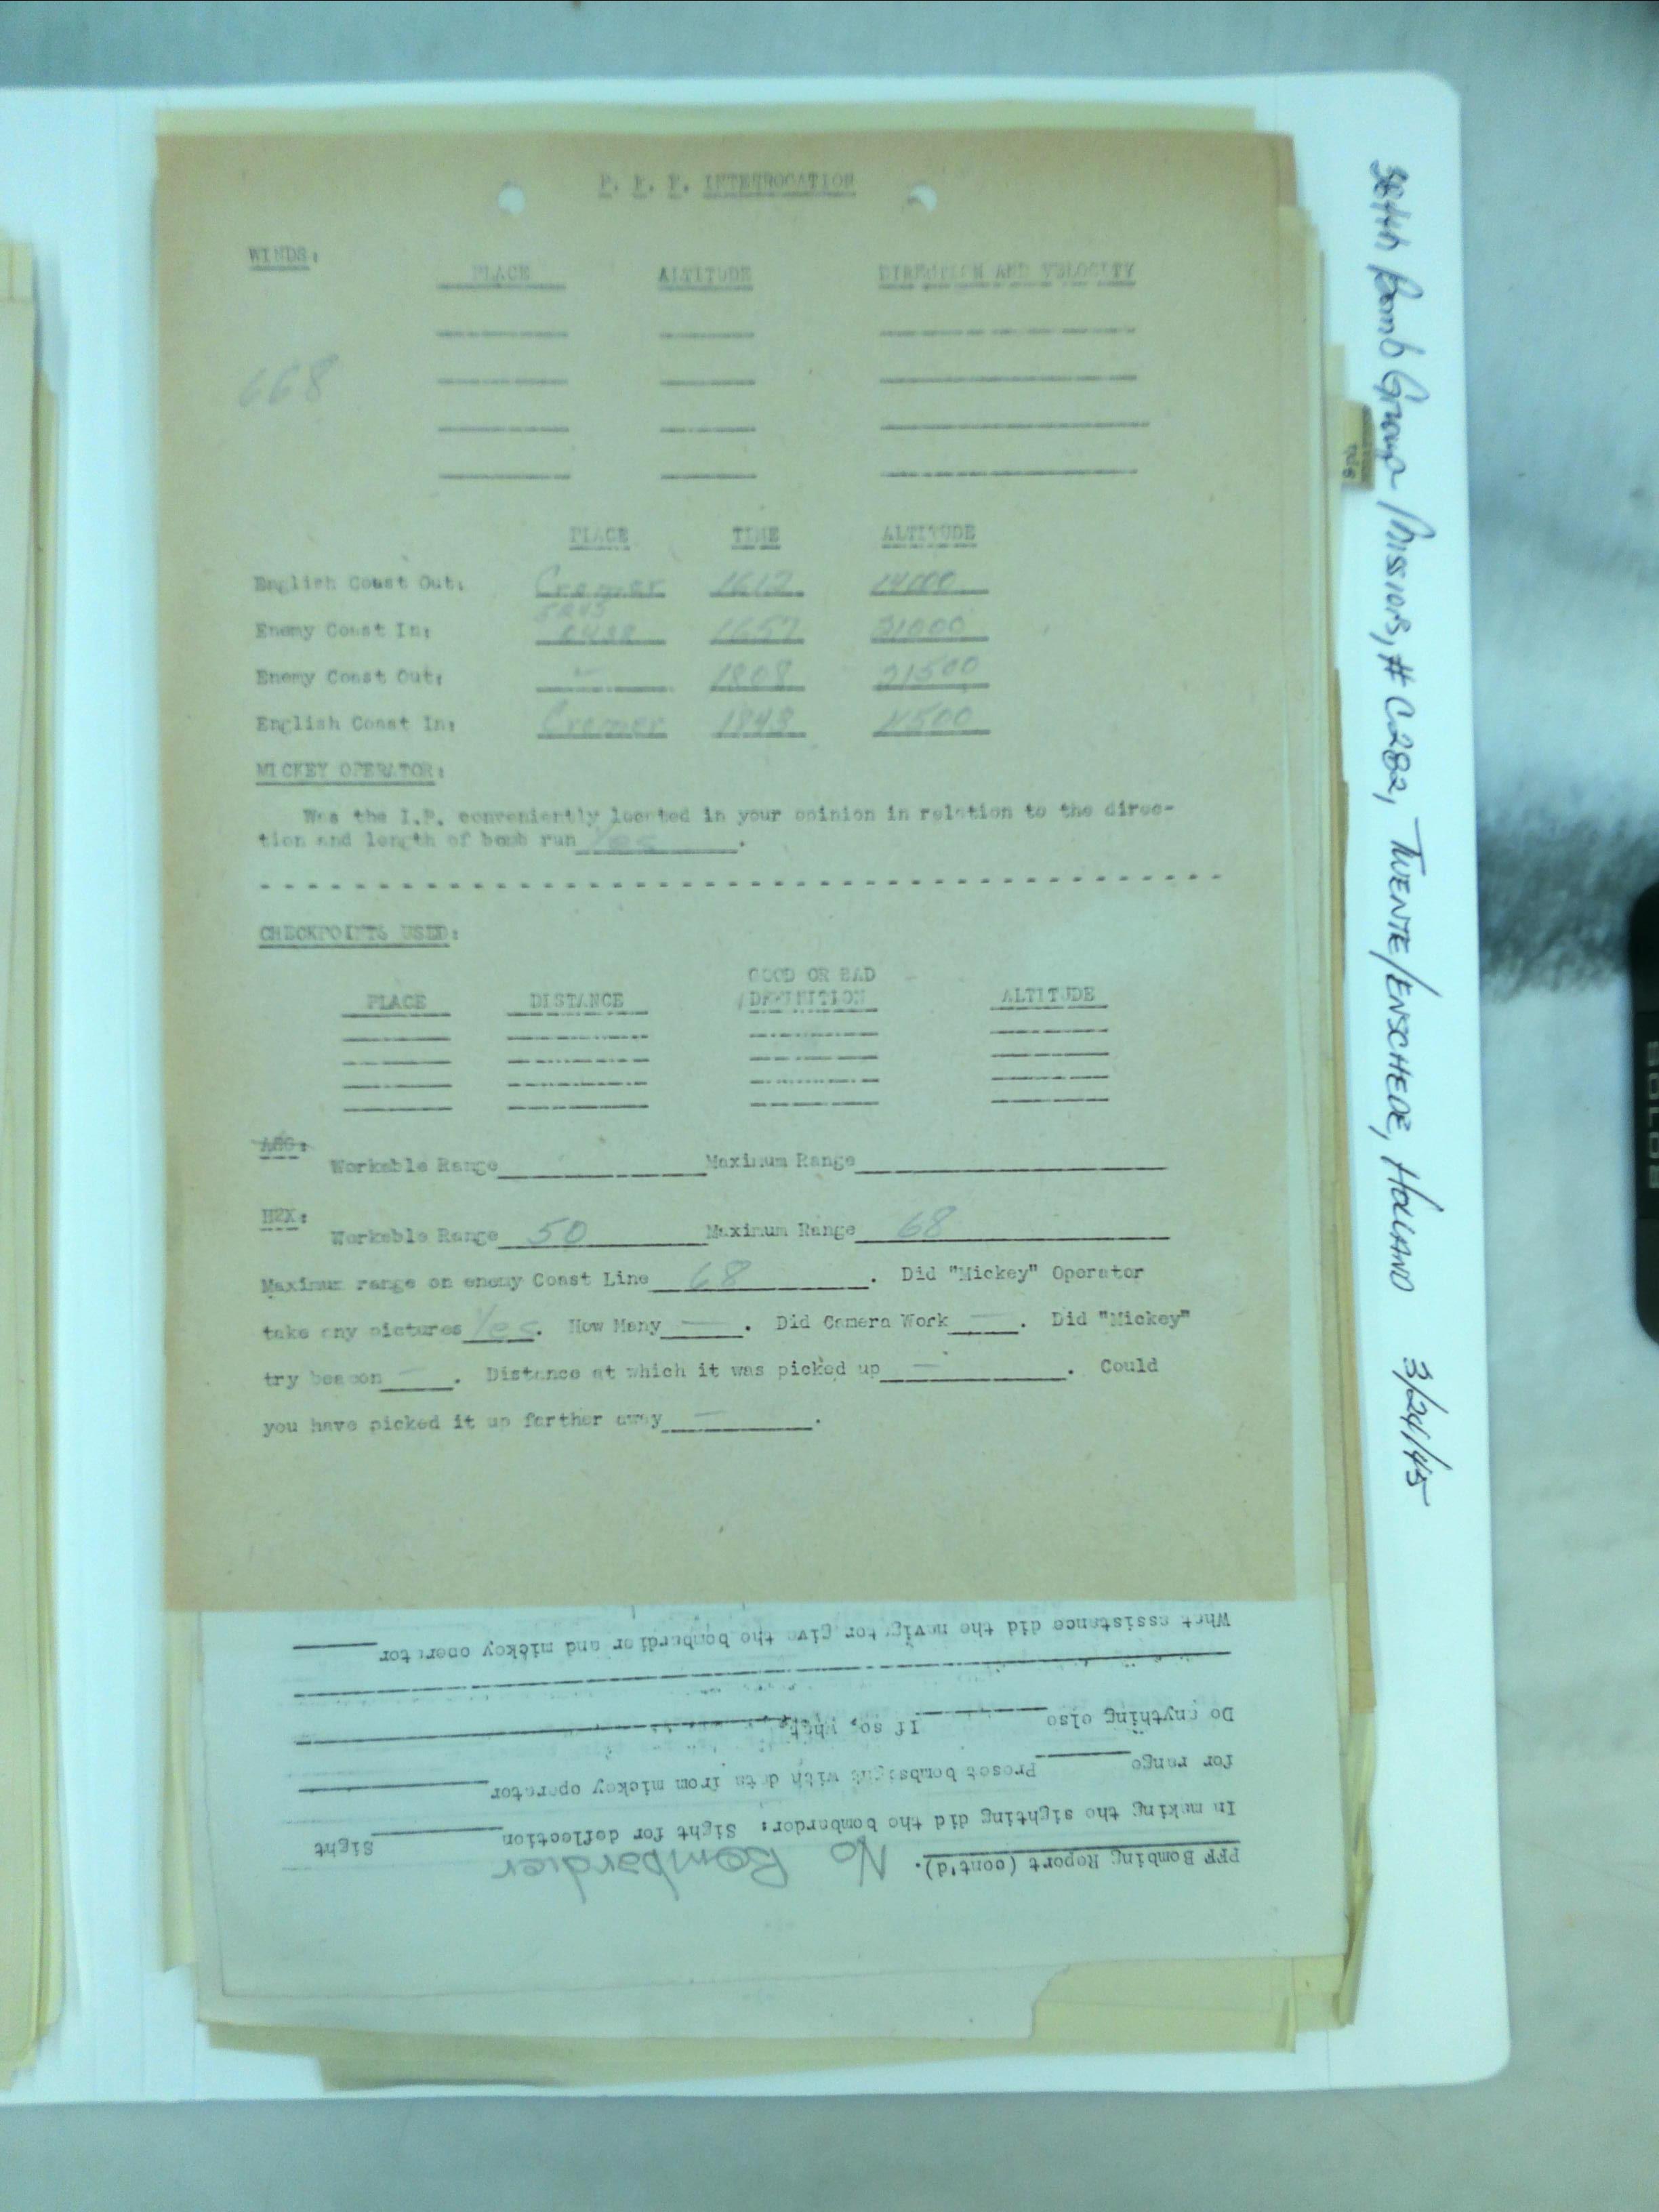 P. F. F. INTERROGATION
WINDS:
PLACE ALTITUDE DIRECTION AND VELOCITY
668
PLACE TIME ALTITUDE
English Coast Out: Cromer 1612 14000
5245
Enemy Coast In: 0438 1657 21000
Enemy Coast Out: - 1808 21500
English Coast In: Cromer 1848
MICKEY OPERATOR:
Was the I.P. conveniently located in your opinion in relation to the direc-
tion and length of bomb run Yes.
CHECKPOINTS USED:
GOOD OR BAD
PLACE DISTANCE DEFINITION ALTITUDE
Workable Range Maximum Range
H2X:
Workable Range 50 Maximum Range 68
Maximum range on enemy Coast Line 68. Did "Mickey" Operator
take any pictures Yes. How Many —. Did Camera Work —. Did "Mickey"
try beacon —. Distance at which it was picked up —. Could
you have picked it up farther away —.
PFF Bombing Report (cont'd). No Bombardier
In making the sighting did the bombardor: Sight for deflection Sight
for range Preset bombsight with data from mickey operator
Do anything else If so, what
What assistance did the navigator give the bombardier and mickey operator
384th Bomb Group Missions, # C282, TWENTE/ENSCHEDE, HOLLAND 3/24/45